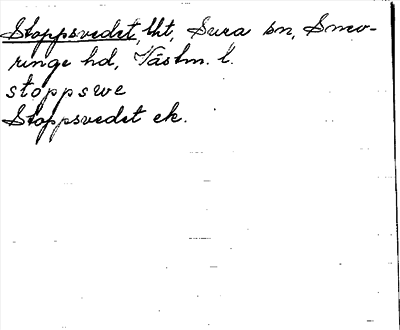 Stoppsvedet, lht, Sura sn, Snev-
ringe hd, Västm. l.
stoppswe
Stoppsvedet ek.